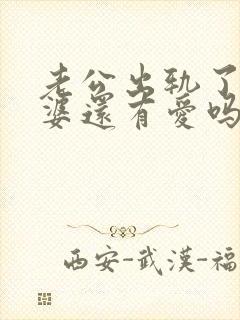 老公出轨了
婆還有愛吗
西安-武漢-福